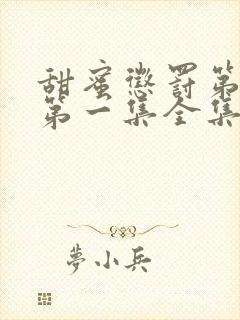 甜蜜懲罰第
第一集全集
夢小兵